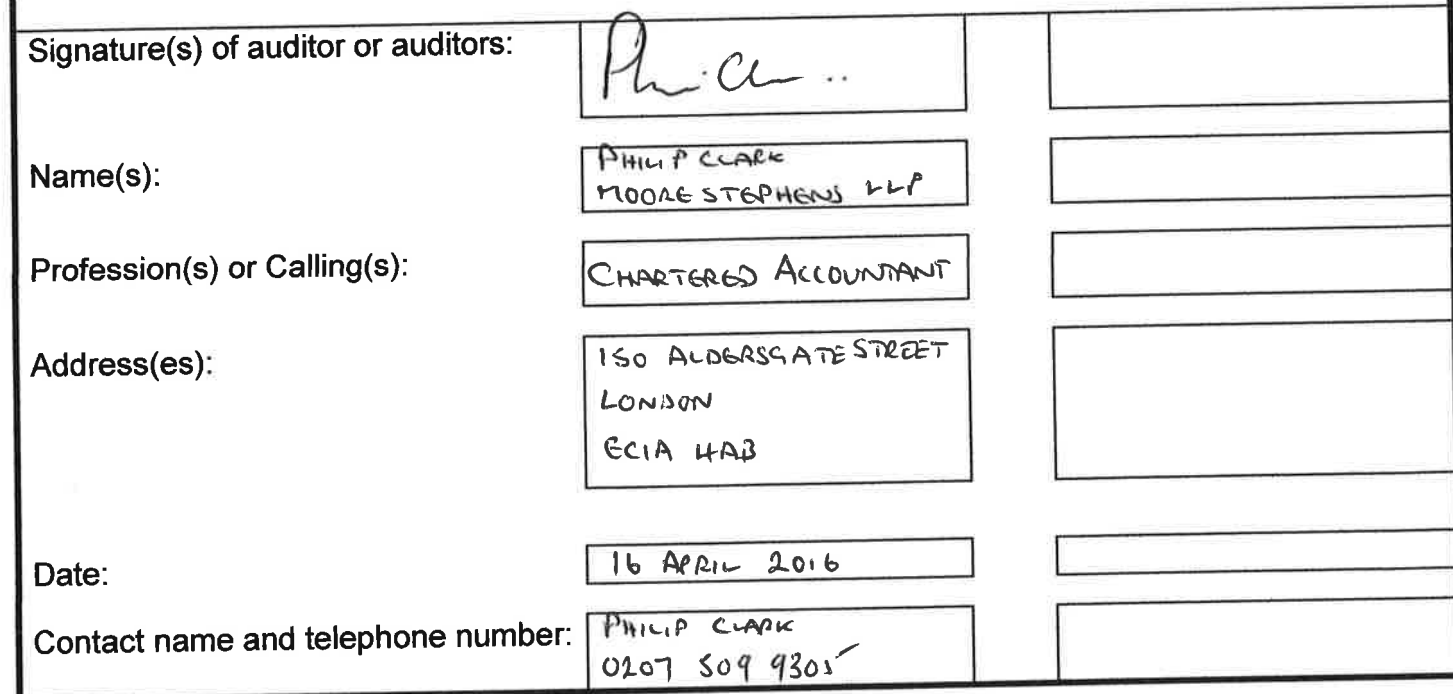 Signature(s) of auditor or auditors:
Name(s):
PHILIP CLARK
MOORE STEPHENS LLP
Profession(s) or Calling(s):
CHARTERED ACCOUNTANT
Address(es):
150 ALDERSGATE STREET
LONDON
EC1A 4AB
Date:
16 APRIL 2016
Contact name and telephone number:
PHILIP CLARK
0207 509 9305